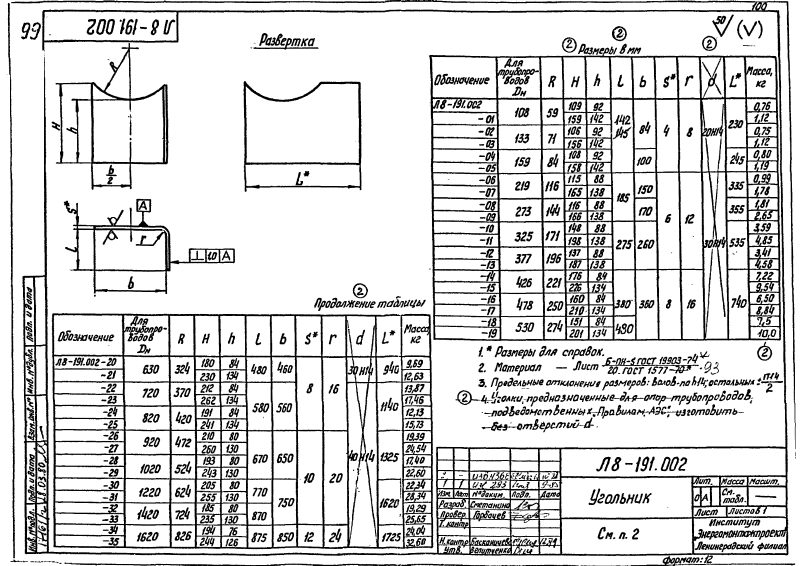 Л8-191.002
66
100
50 (√)
Развертка
R
H
h
b/2
L*
s*
l
r
b
А
⊥ 1,0 А
② Размеры в мм ② ②
Обозначение Для трубопроводов Dн R H h l b s* r d L* Масса, кг
Л8-191.002 108 59 109 92 142 145 84 4 8 20H14 230 0,76
-01 159 142 1,12
-02 133 71 106 92 0,75
-03 156 142 1,12
-04 159 84 108 92 100 245 0,80
-05 158 142 1,19
-06 219 116 115 88 185 150 6 12 30H14 335 0,99
-07 165 138 1,78
-08 273 144 116 88 170 355 1,81
-09 166 138 2,65
-10 325 171 148 88 275 260 535 3,59
-11 198 138 4,85
-12 377 196 137 88 3,41
-13 187 138 4,58
-14 426 221 176 84 380 360 8 16 740 7,22
-15 226 134 9,54
-16 478 250 160 84 6,50
-17 210 134 8,84
-18 530 274 151 84 430 7,5
-19 201 134 10,0
②
Продолжение таблицы
Обозначение Для трубопроводов Dн R H h l b s* r d L* Масса, кг
Л8-191.002-20 630 324 180 84 480 460 8 16 30H14 940 9,69
-21 230 134 12,63
-22 720 370 212 84 580 560 1140 13,87
-23 262 134 17,46
-24 820 420 191 84 12,13
-25 241 134 15,73
-26 920 472 210 80 670 650 10 20 40H14 1325 19,39
-27 260 130 24,54
-28 1020 524 193 80 17,40
-29 243 130 22,60
-30 1220 624 205 80 770 750 1620 22,34
-31 255 130 28,34
-32 1420 724 185 80 870 19,29
-33 235 130 25,65
-34 1620 826 194 76 875 850 12 24 1725 24,04
-35 244 126 32,60
1.* Размеры для справок.
2. Материал — Лист 6-ПН-S ГОСТ 19903-74* / 20. ГОСТ 1577-70* -93
3. Предельные отклонения размеров: валов-по h14; остальных ± IT14/2
② 4. Уголки, предназначенные для опор трубопроводов, подведомственных „Правилам АЭС", изготовить без отверстий d.
Л8-191.002
Угольник
См. п. 2
Лит. Масса Масштаб
0 А См. табл. —
Лист Листов 1
Институт
„Энергомонтажпроект"
Ленинградский филиал
Изм. Лист № докум. Подп. Дата
Разраб. Сметанина
Провер. Горбачев
Т. контр.
Н. контр.
Утв.
Инв. № подл. Подп. и дата Взам. инв. № Инв. № дубл. Подп. и дата
Формат: 12